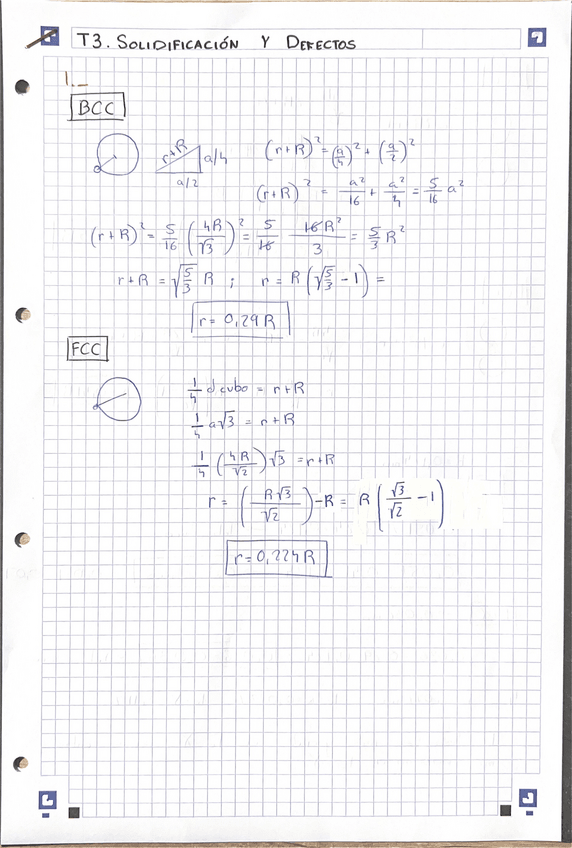 T3. SOLIDIFICACIÓN Y DEFECTOS
1._
BCC
r+R a/4 a/2
(r+R)² = (a/4)² + (a/2)²
(r+R)² = a²/16 + a²/4 = 5/16 a²
(r+R)² = 5/16 (4R/√3)² = 5/16 16R²/3 = 5/3 R²
r+R = √5/3 R ; r = R(√5/3 - 1) =
r = 0,29R
FCC
1/4 d cubo = r+R
1/4 a√3 = r+R
1/4 (4R/√2)√3 = r+R
r = (R√3/√2) - R = R(√3/√2 - 1)
r = 0,224R